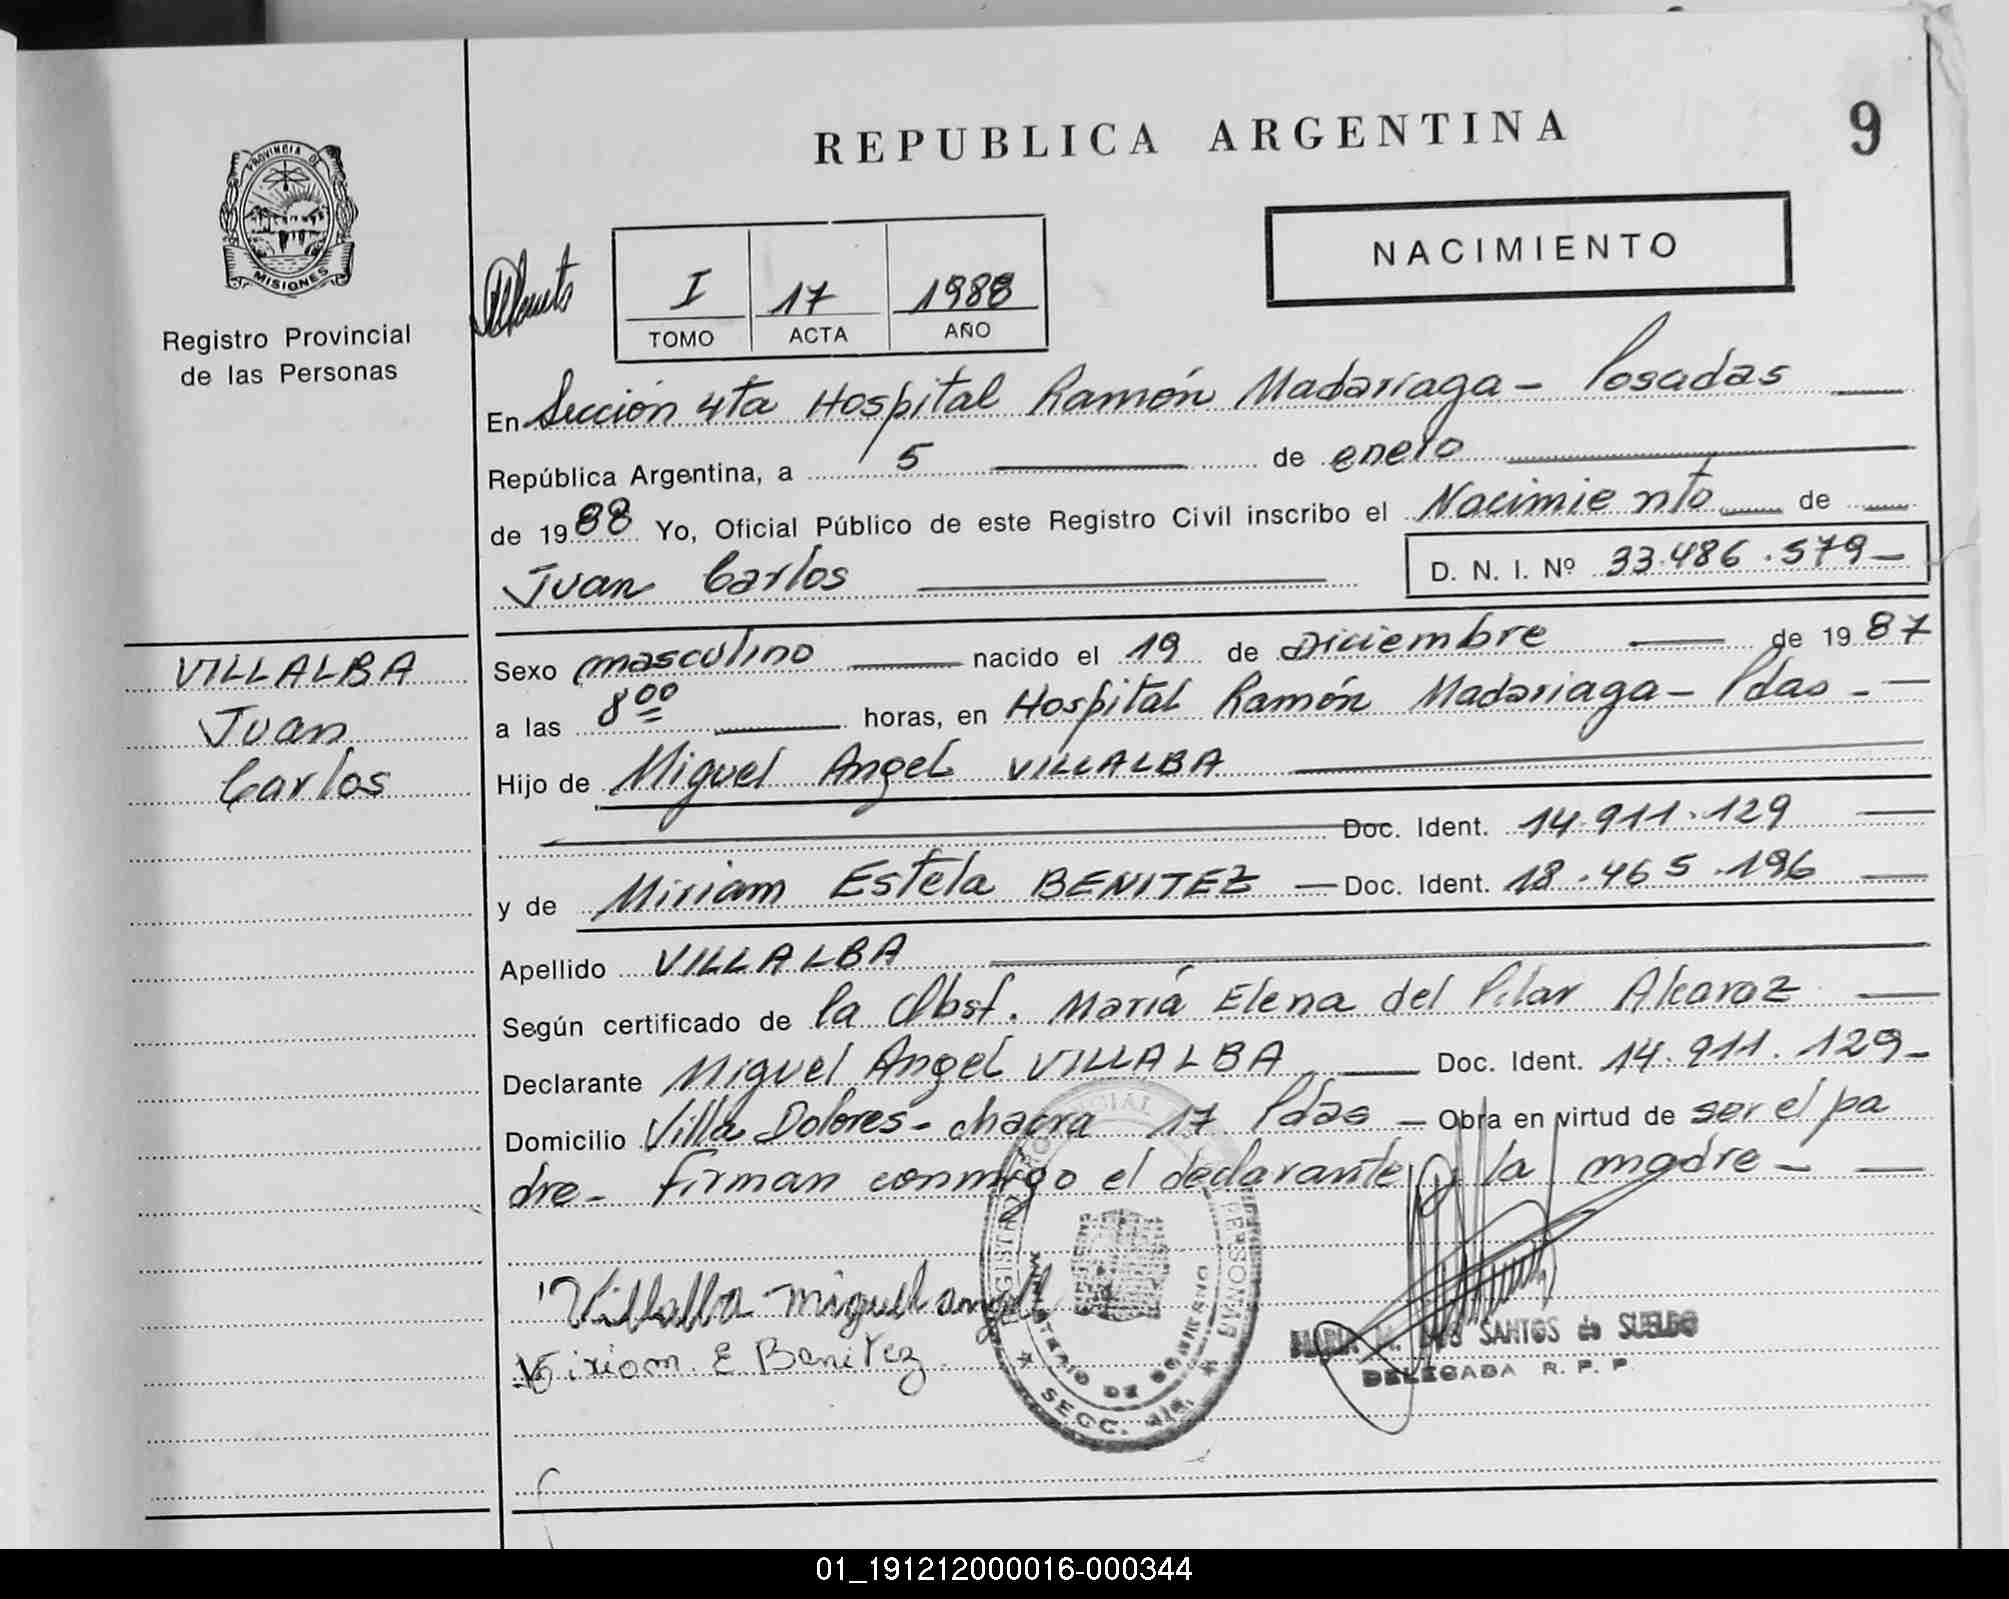 REPUBLICA ARGENTINA
9
PROVINCIA DE
MISIONES
Registro Provincial
de las Personas
NACIMIENTO
I 17 1988
TOMO ACTA AÑO
En Sección 4ta Hospital Ramón Madariaga - Posadas
República Argentina, a 5 de enero
de 1988 Yo, Oficial Público de este Registro Civil inscribo el Nacimiento de
Juan Carlos
D. N. I. Nº 33.486.579-
VILLALBA
Juan
Carlos
Sexo masculino nacido el 19 de Diciembre de 1987
a las 8 00 horas, en Hospital Ramón Madariaga - Pdas -
Hijo de Miguel Angel VILLALBA
Doc. Ident. 14.911.129
y de Miriam Estela BENITEZ - Doc. Ident. 18.465.196
Apellido VILLALBA
Según certificado de la Obst. María Elena del Pilar Alcaraz
Declarante Miguel Angel VILLALBA Doc. Ident. 14.911.129-
Domicilio Villa Dolores - chacra 17 Pdas - Obra en virtud de ser el pa
dre - firman conmigo el declarante y la madre -
Villalba miguel angel
Miriam E Benitez
MINISTERIO DE GOBIERNO
SECC.
SANTOS de SUELDO
DELEGADA R. P. P.
01_191212000016-000344